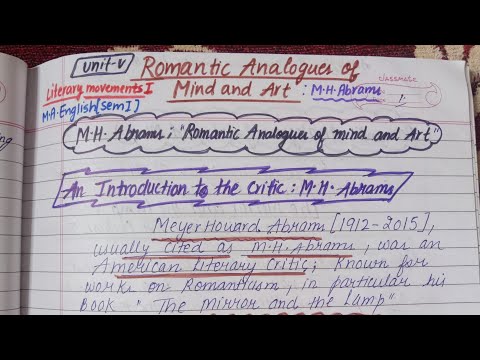 unit-V
Romantic Analogues of
Literary movements I
Mind and Art : M.H.Abrams
M.A.English[sem I]
classmate
M.H.Abrams : "Romantic Analogues of mind and Art"
An Introduction to the critic : M.H. Abrams
Meyer Howard Abrams [1912-2015],
usually cited as M.H.Abrams, was an
American Literary Critic; Known for
works on Romanticism, in particular his
Book "The Mirror and the Lamp"